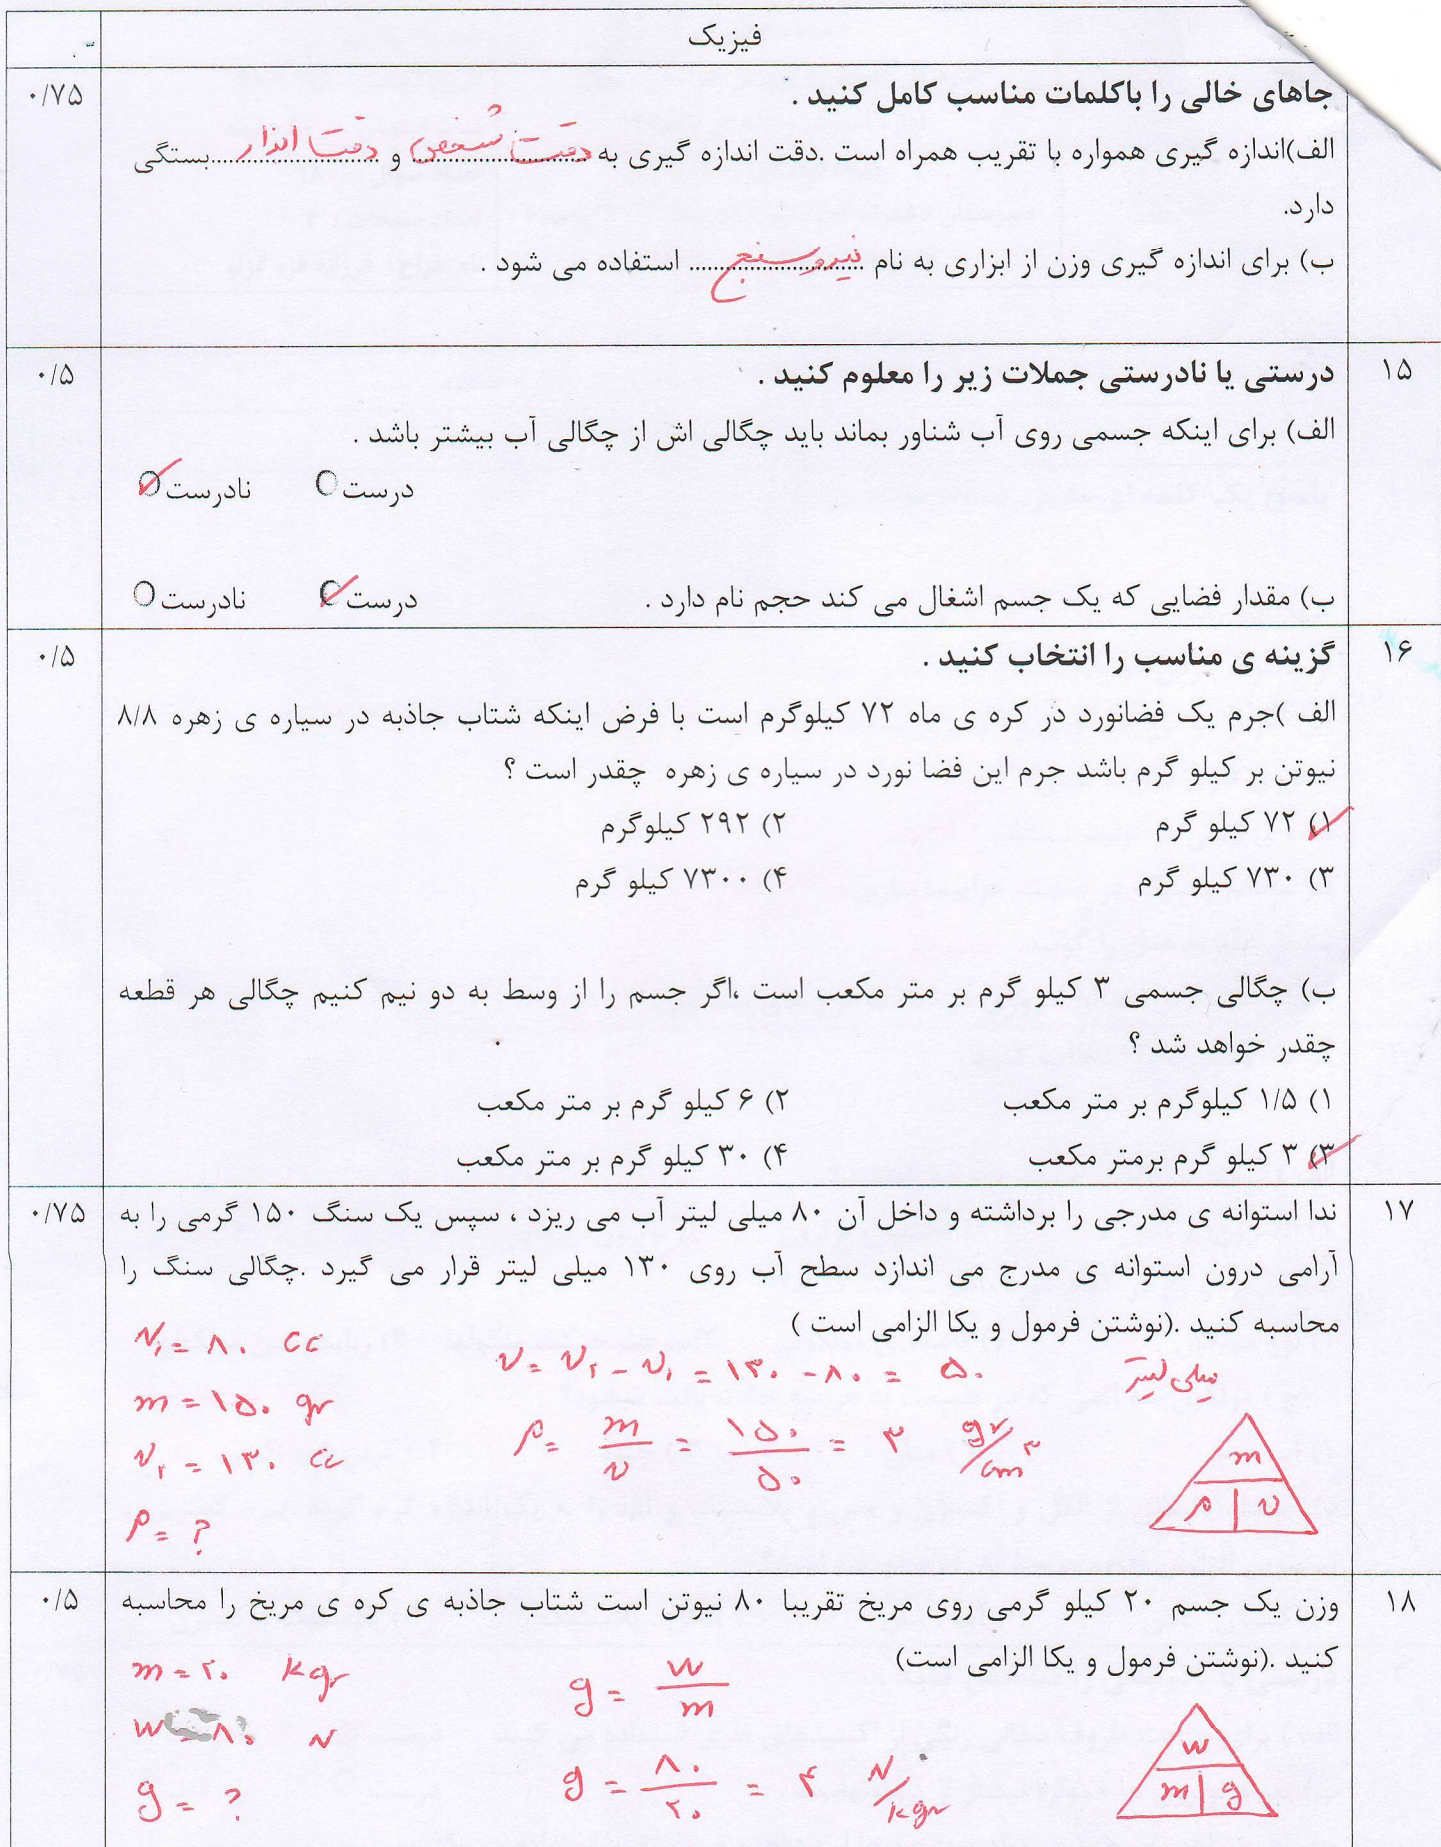 فیزیک
۰/۷۵
جاهای خالی را باکلمات مناسب کامل کنید .
الف)اندازه گیری همواره با تقریب همراه است .دقت اندازه گیری به دقت شخص و دقت ابزار بستگی
دارد.
ب) برای اندازه گیری وزن از ابزاری به نام نیروسنج استفاده می شود .
۱۵
درستی یا نادرستی جملات زیر را معلوم کنید .
۰/۵
الف) برای اینکه جسمی روی آب شناور بماند باید چگالی اش از چگالی آب بیشتر باشد .
درست
نادرست
ب) مقدار فضایی که یک جسم اشغال می کند حجم نام دارد .
درست
نادرست
۱۶
گزینه ی مناسب را انتخاب کنید .
۰/۵
الف )جرم یک فضانورد در کره ی ماه ۷۲ کیلوگرم است با فرض اینکه شتاب جاذبه در سیاره ی زهره ۸/۸
نیوتن بر کیلو گرم باشد جرم این فضا نورد در سیاره ی زهره چقدر است ؟
۱) ۷۲ کیلو گرم
۲) ۲۹۲ کیلوگرم
۳) ۷۳۰ کیلو گرم
۴) ۷۳۰۰ کیلو گرم
ب) چگالی جسمی ۳ کیلو گرم بر متر مکعب است ،اگر جسم را از وسط به دو نیم کنیم چگالی هر قطعه
چقدر خواهد شد ؟
۱) ۱/۵ کیلوگرم بر متر مکعب
۲) ۶ کیلو گرم بر متر مکعب
۳) ۳ کیلو گرم برمتر مکعب
۴) ۳۰ کیلو گرم بر متر مکعب
۱۷
ندا استوانه ی مدرجی را برداشته و داخل آن ۸۰ میلی لیتر آب می ریزد ، سپس یک سنگ ۱۵۰ گرمی را به
۰/۷۵
آرامی درون استوانه ی مدرج می اندازد سطح آب روی ۱۳۰ میلی لیتر قرار می گیرد .چگالی سنگ را
محاسبه کنید .(نوشتن فرمول و یکا الزامی است )
v₁ = ۸۰ cc
v = v₂ - v₁ = ۱۳۰ - ۸۰ = ۵۰ میلی لیتر
m = ۱۵۰ gr
ρ = m/v = ۱۵۰/۵۰ = ۳ gr/cm³
v₂ = ۱۳۰ cc
ρ = ?
m
ρ v
۱۸
وزن یک جسم ۲۰ کیلو گرمی روی مریخ تقریبا ۸۰ نیوتن است شتاب جاذبه ی کره ی مریخ را محاسبه
۰/۵
کنید .(نوشتن فرمول و یکا الزامی است)
m = ۲۰ kgr
g = w/m
w = ۸۰ N
g = ۸۰/۲۰ = ۴ N/kgr
g = ?
w
m g